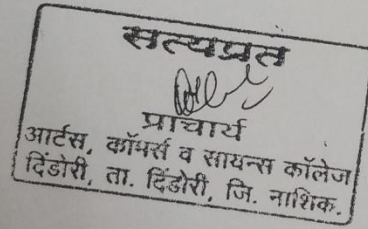 सत्यप्रत
प्राचार्य
आर्टस, कॉमर्स व सायन्स कॉलेज
दिंडोरी, ता. दिंडोरी, जि. नाशिक.